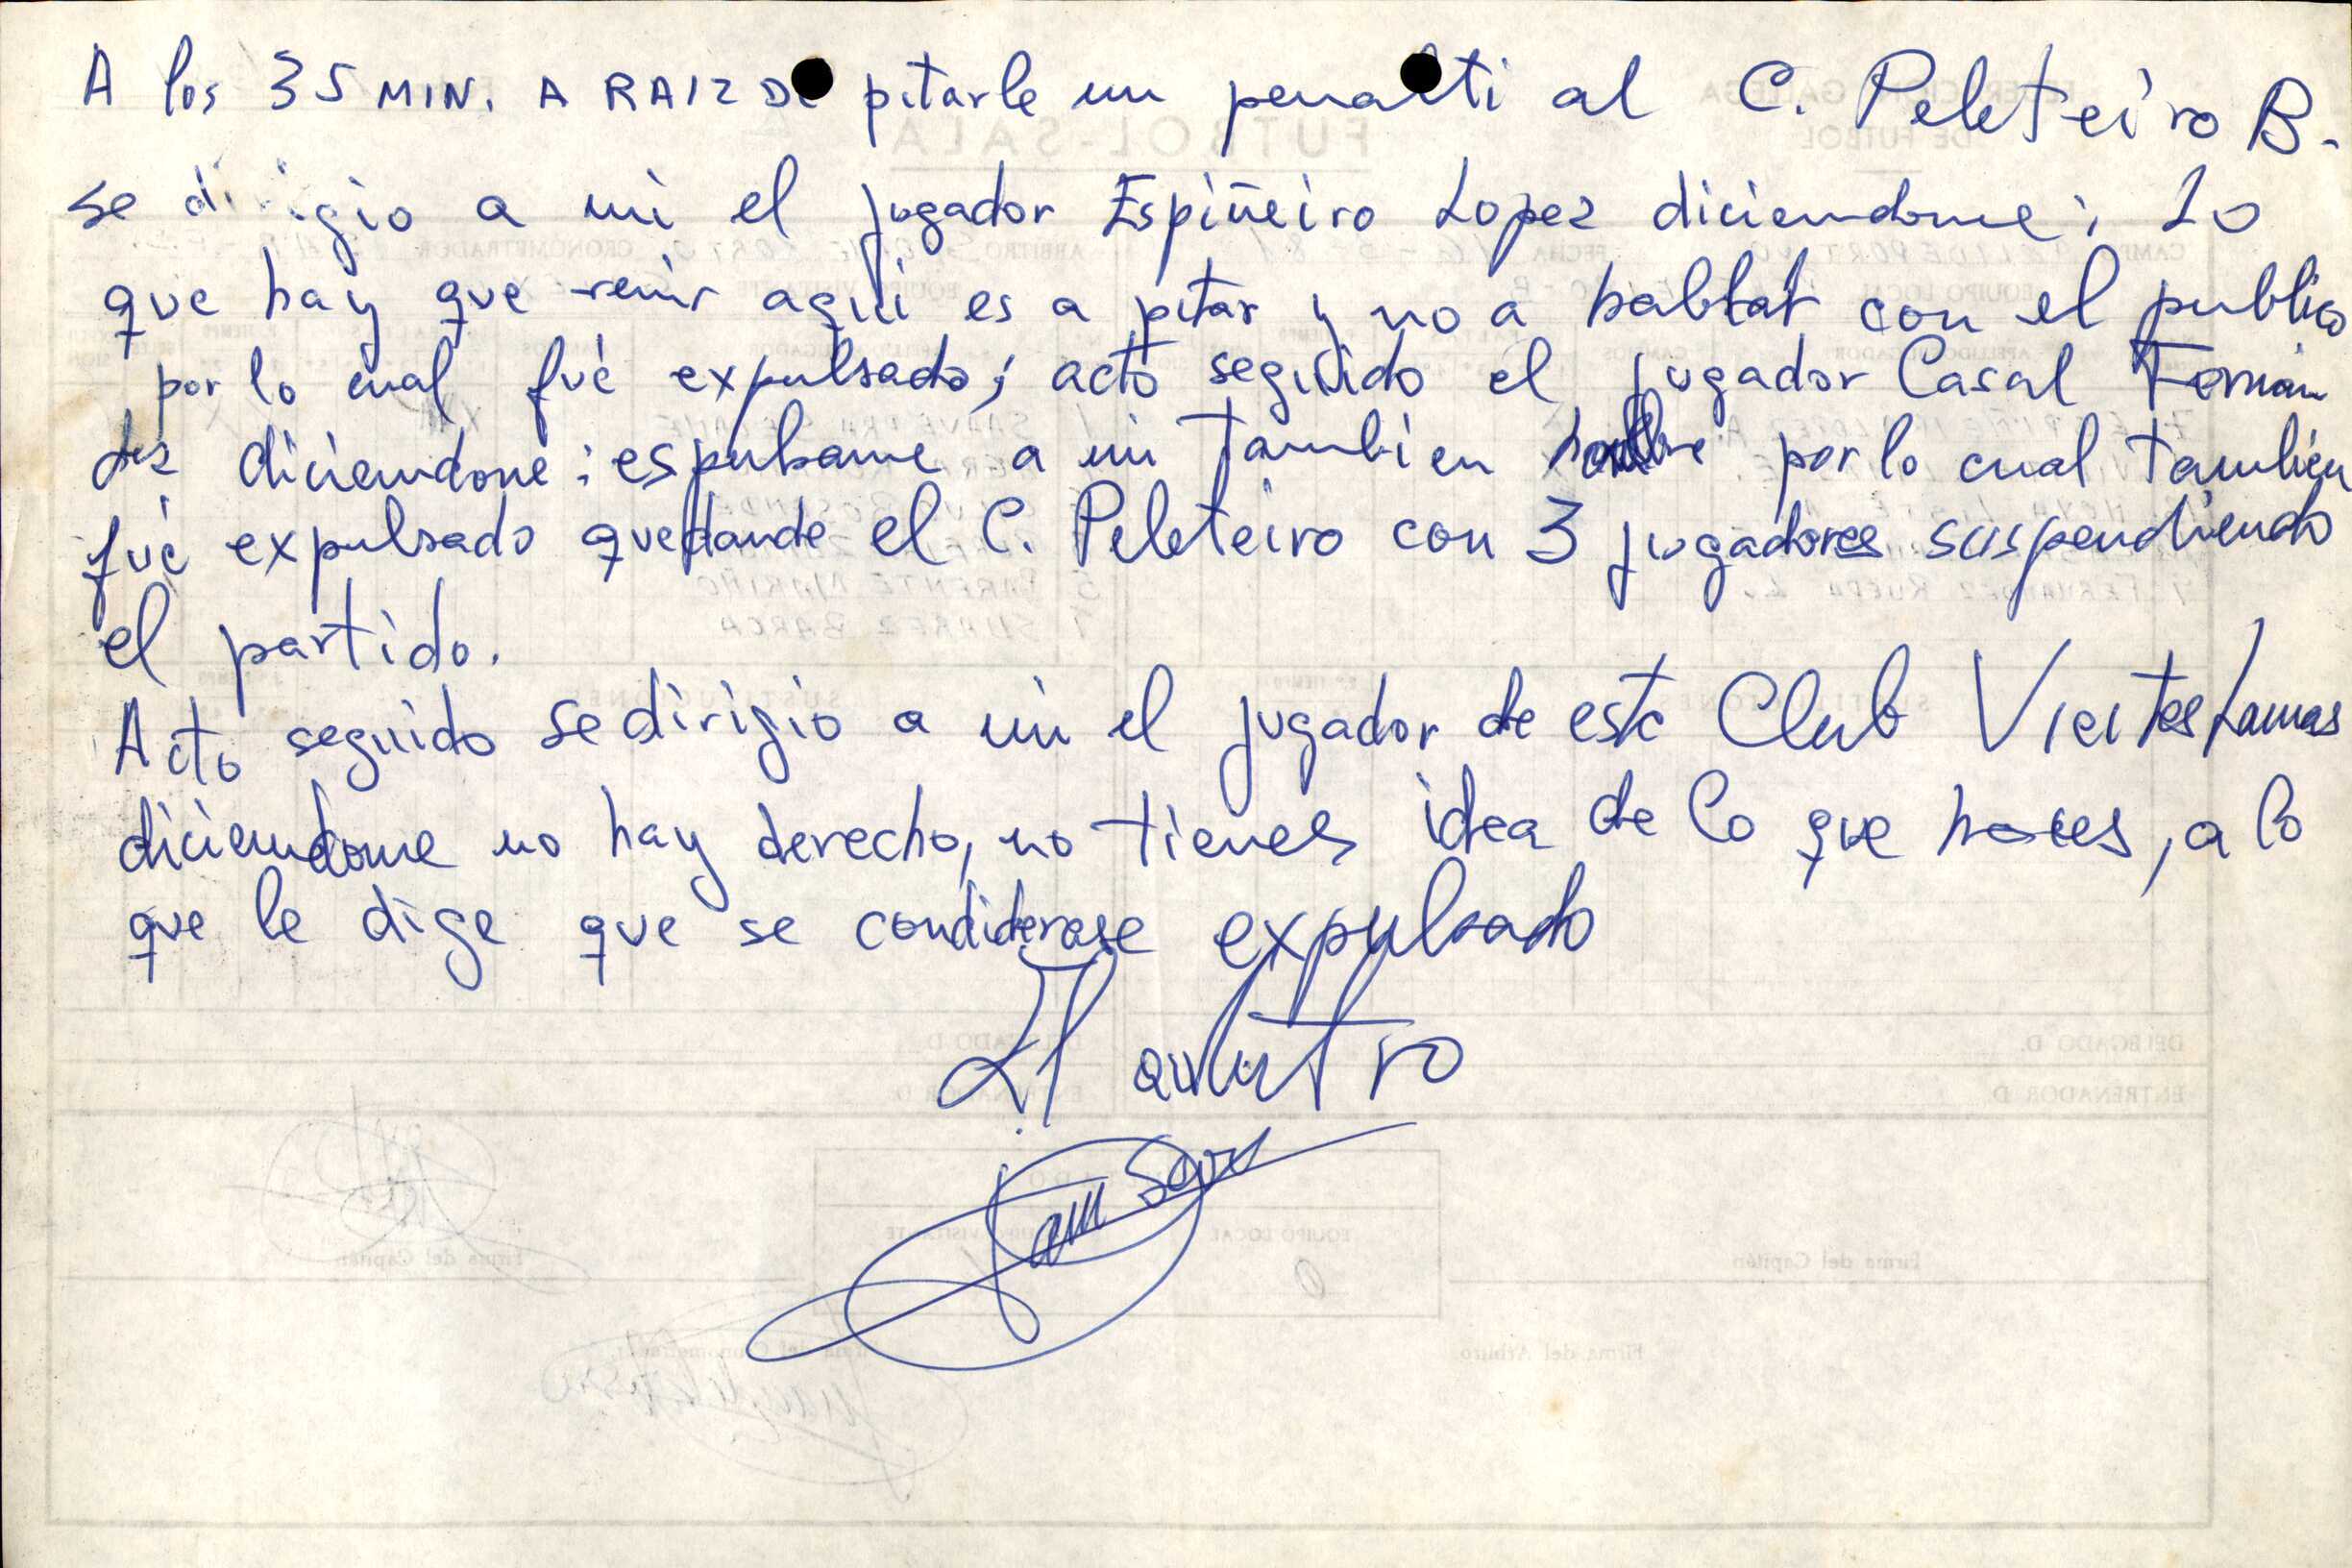 A los 35 MIN. A RAIZ DE pitarle un penalti al C. Peleteiro B.
se dirigio a mi el jugador Espiñeiro Lopez diciendome: Lo
que hay que venir aqui es a pitar y no a hablar con el publico
por lo cual fué expulsado; acto seguido el jugador Casal Fernan
dez diciendone: espulsame a mi tambien hombre por lo cual tambien
fué expulsado quedande el C. Peleteiro con 3 jugadores suspendiendo
el partido.
Acto seguido se dirigio a mi el jugador de este Club Vieites Lamas
diciendome no hay derecho, no tienes idea de lo que haces, a lo
que le dige que se condiderase expulsado
El arbitro